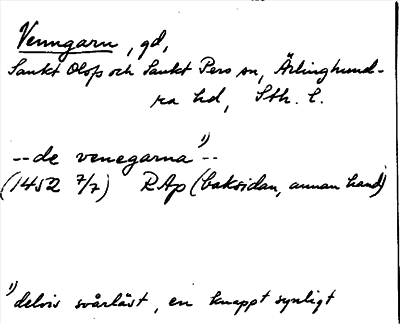 Venngarn, gd,
Sankt Olofs och Sankt Pers sn, Ärlinghund-
ra hd, Sth. l.
-- de venegarna 1) --
(1452 7/7) RAp (baksidan, annan hand)
1) delvis svårläst, en knappt synligt